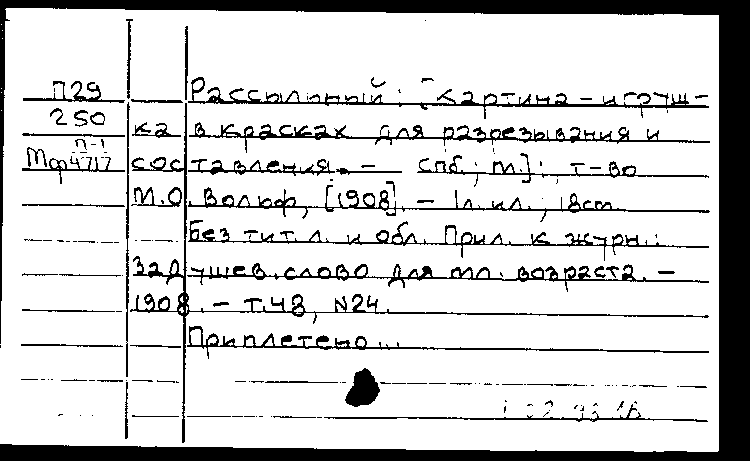 П29 Рассыльный: [Картина-игруш-
250 ка в красках для разрезывания и
Мф П-1 4717 составления. - Спб.; М.]: Т-во
М.О. Вольф, [1908]. - 1л. ил.; 18см
Без тит. л. и обл. Прил. к журн.:
Задушев. слово для мл. возраста. -
1908. - Т.48, N24.
Приплетено...